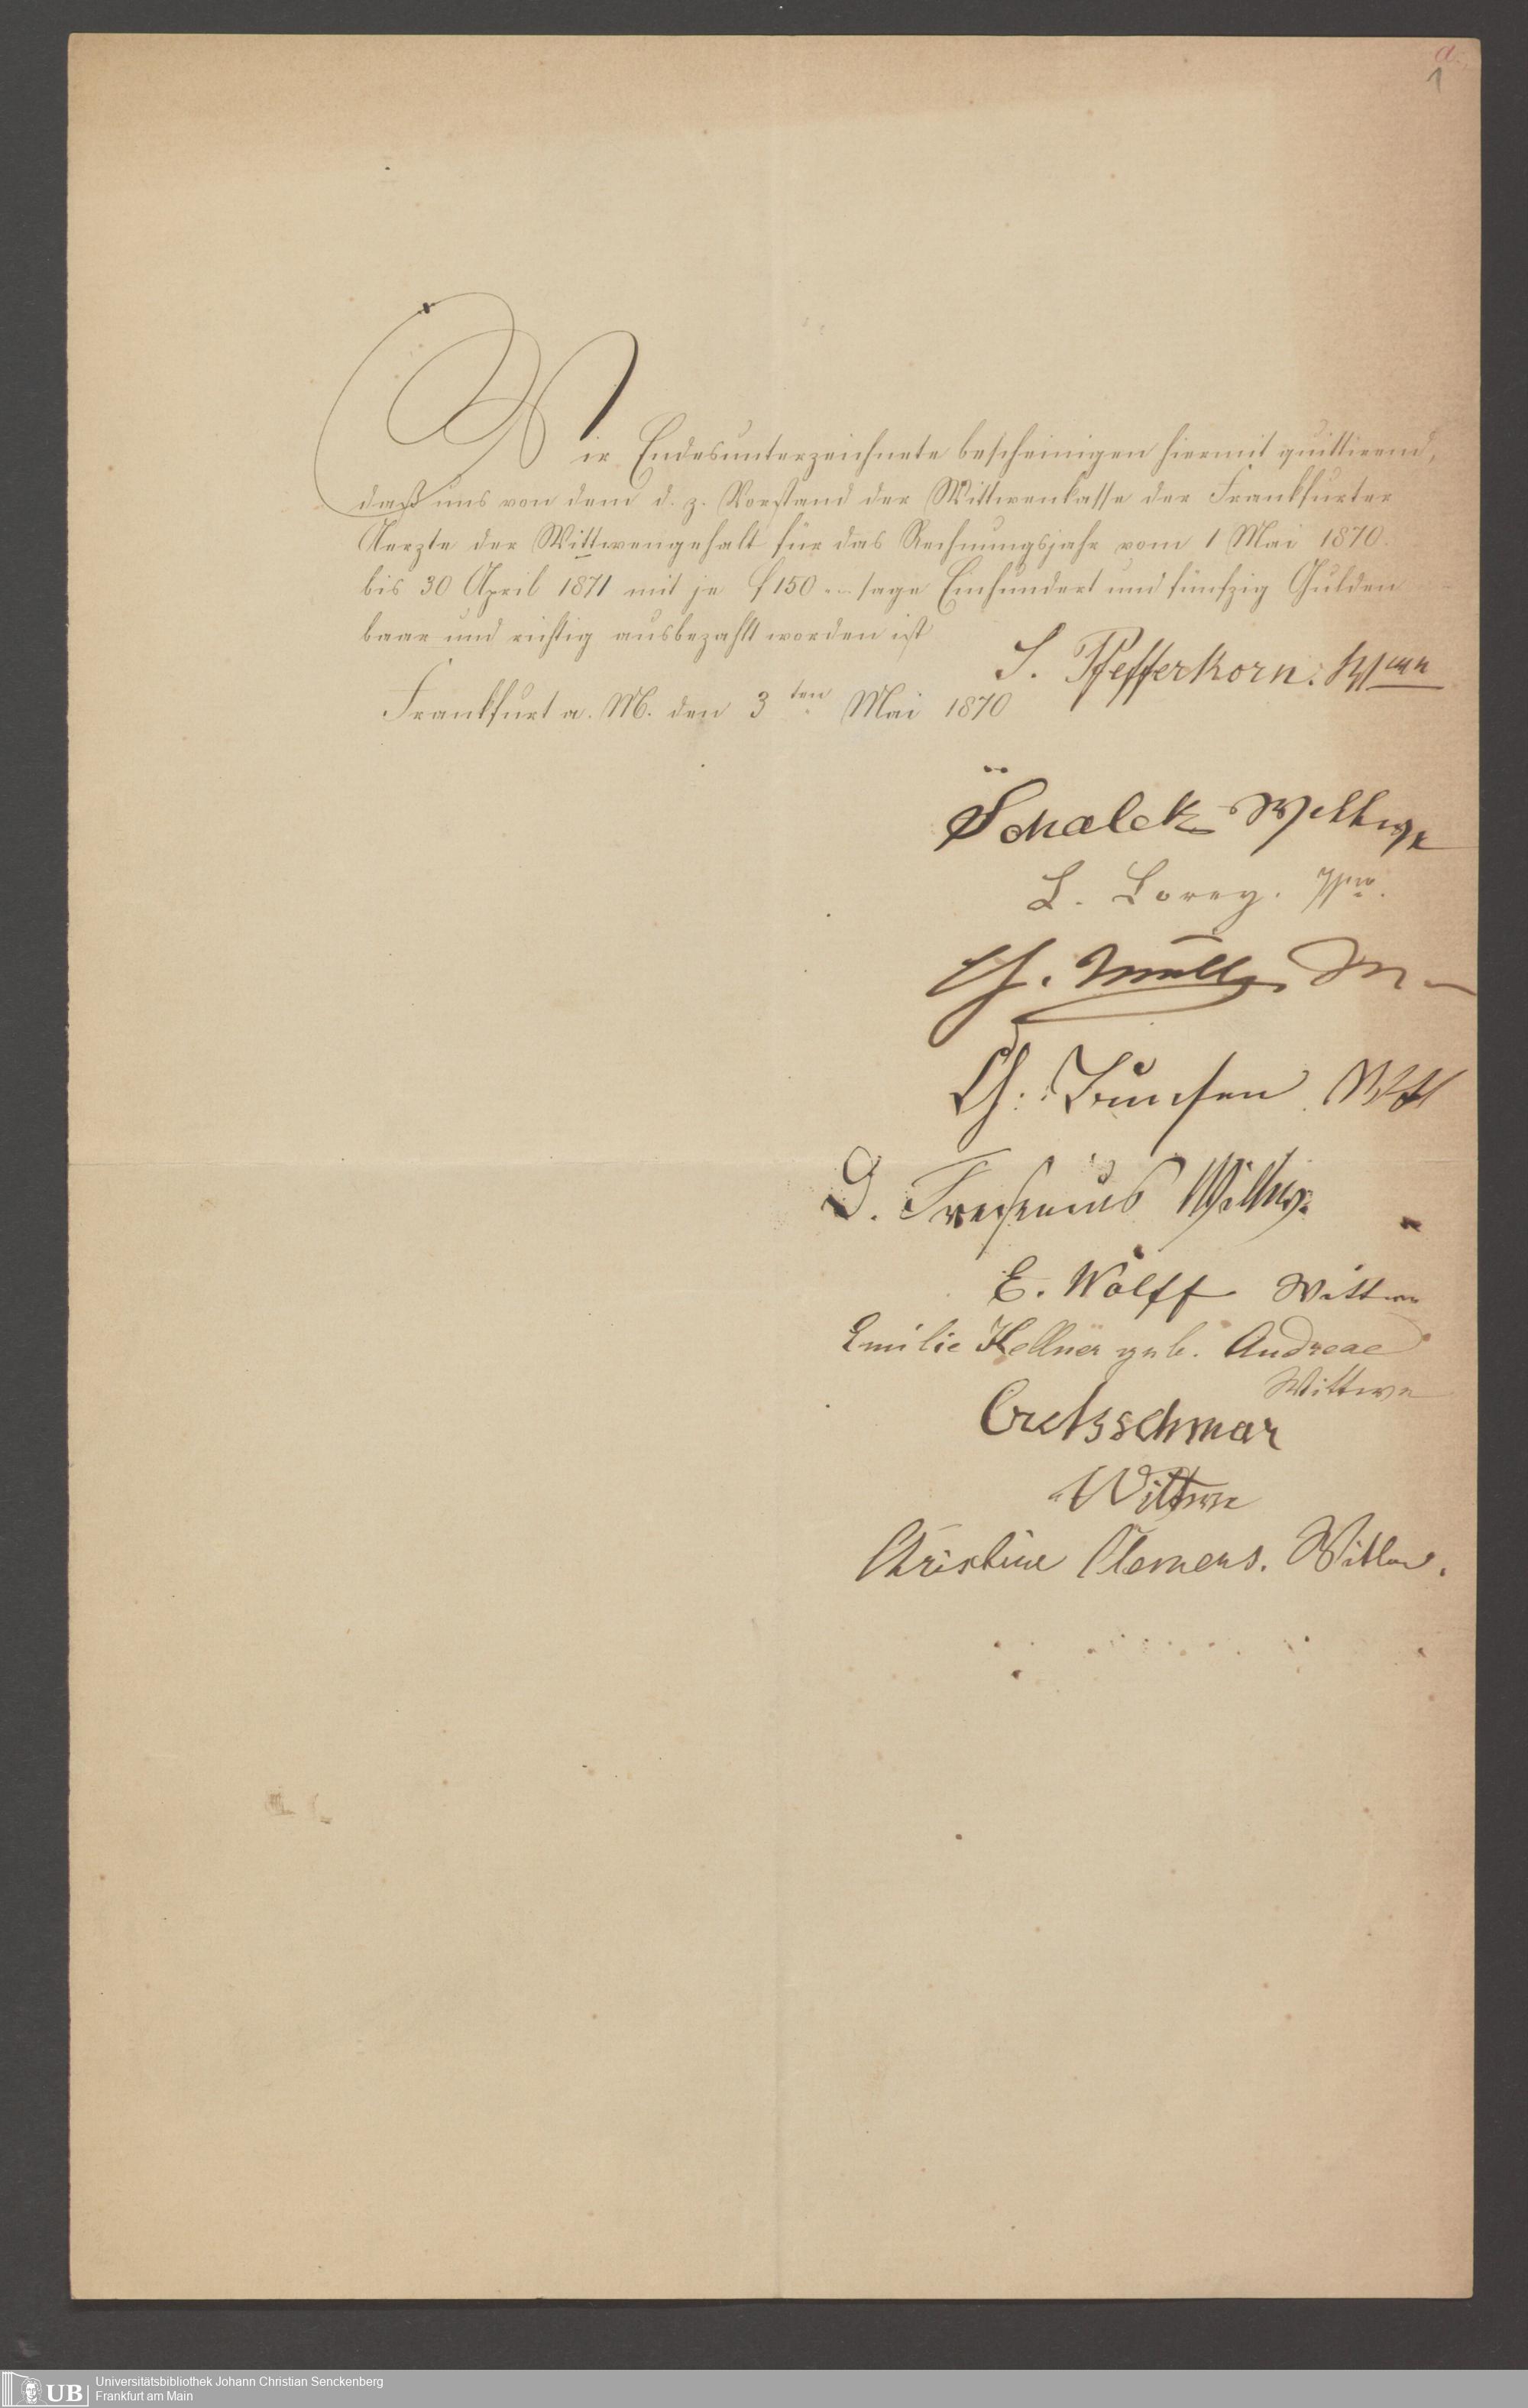 a.
1
Wir Endesunterzeichnete bescheinigen hiermit quittirend,
daß uns von dem d. z. Vorstand der Wittwenkasse der Frankfurter
Aerzte der Wittwengehalt für das Rechnungsjahr vom 1 Mai 1870.
bis 30 April 1871 mit je f 150 sage Einhundert und fünfzig Gulden
baar und richtig ausbezahlt worden ist
S. Pfefferkorn.
Frankfurt a. M. den 3ten Mai 1870
Schalck Wittwe
L. Lorey. Wwe.
Ch. Müller
Ch.
D. Fresenius Wittwe.
E. Wolff Wittwe
Emilie Kellner geb. Andreae
Wittwe
Cretzschmar
Wittwe
Christine Clemens. Wittwe.
UB
Universitätsbibliothek Johann Christian Senckenberg
Frankfurt am Main